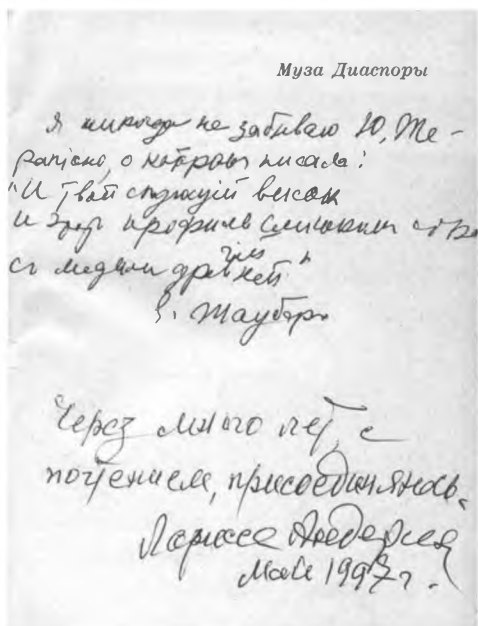 Муза Диаспоры
Я никогда не забываю Ю. Те-
рапиано, о котором писала:
"И твой
И этот профиль слишком
с медали древней"
Таубер
Через много лет, с
почтением, присоединяюсь.
Ларисса Андерсен
Май 1997 г.